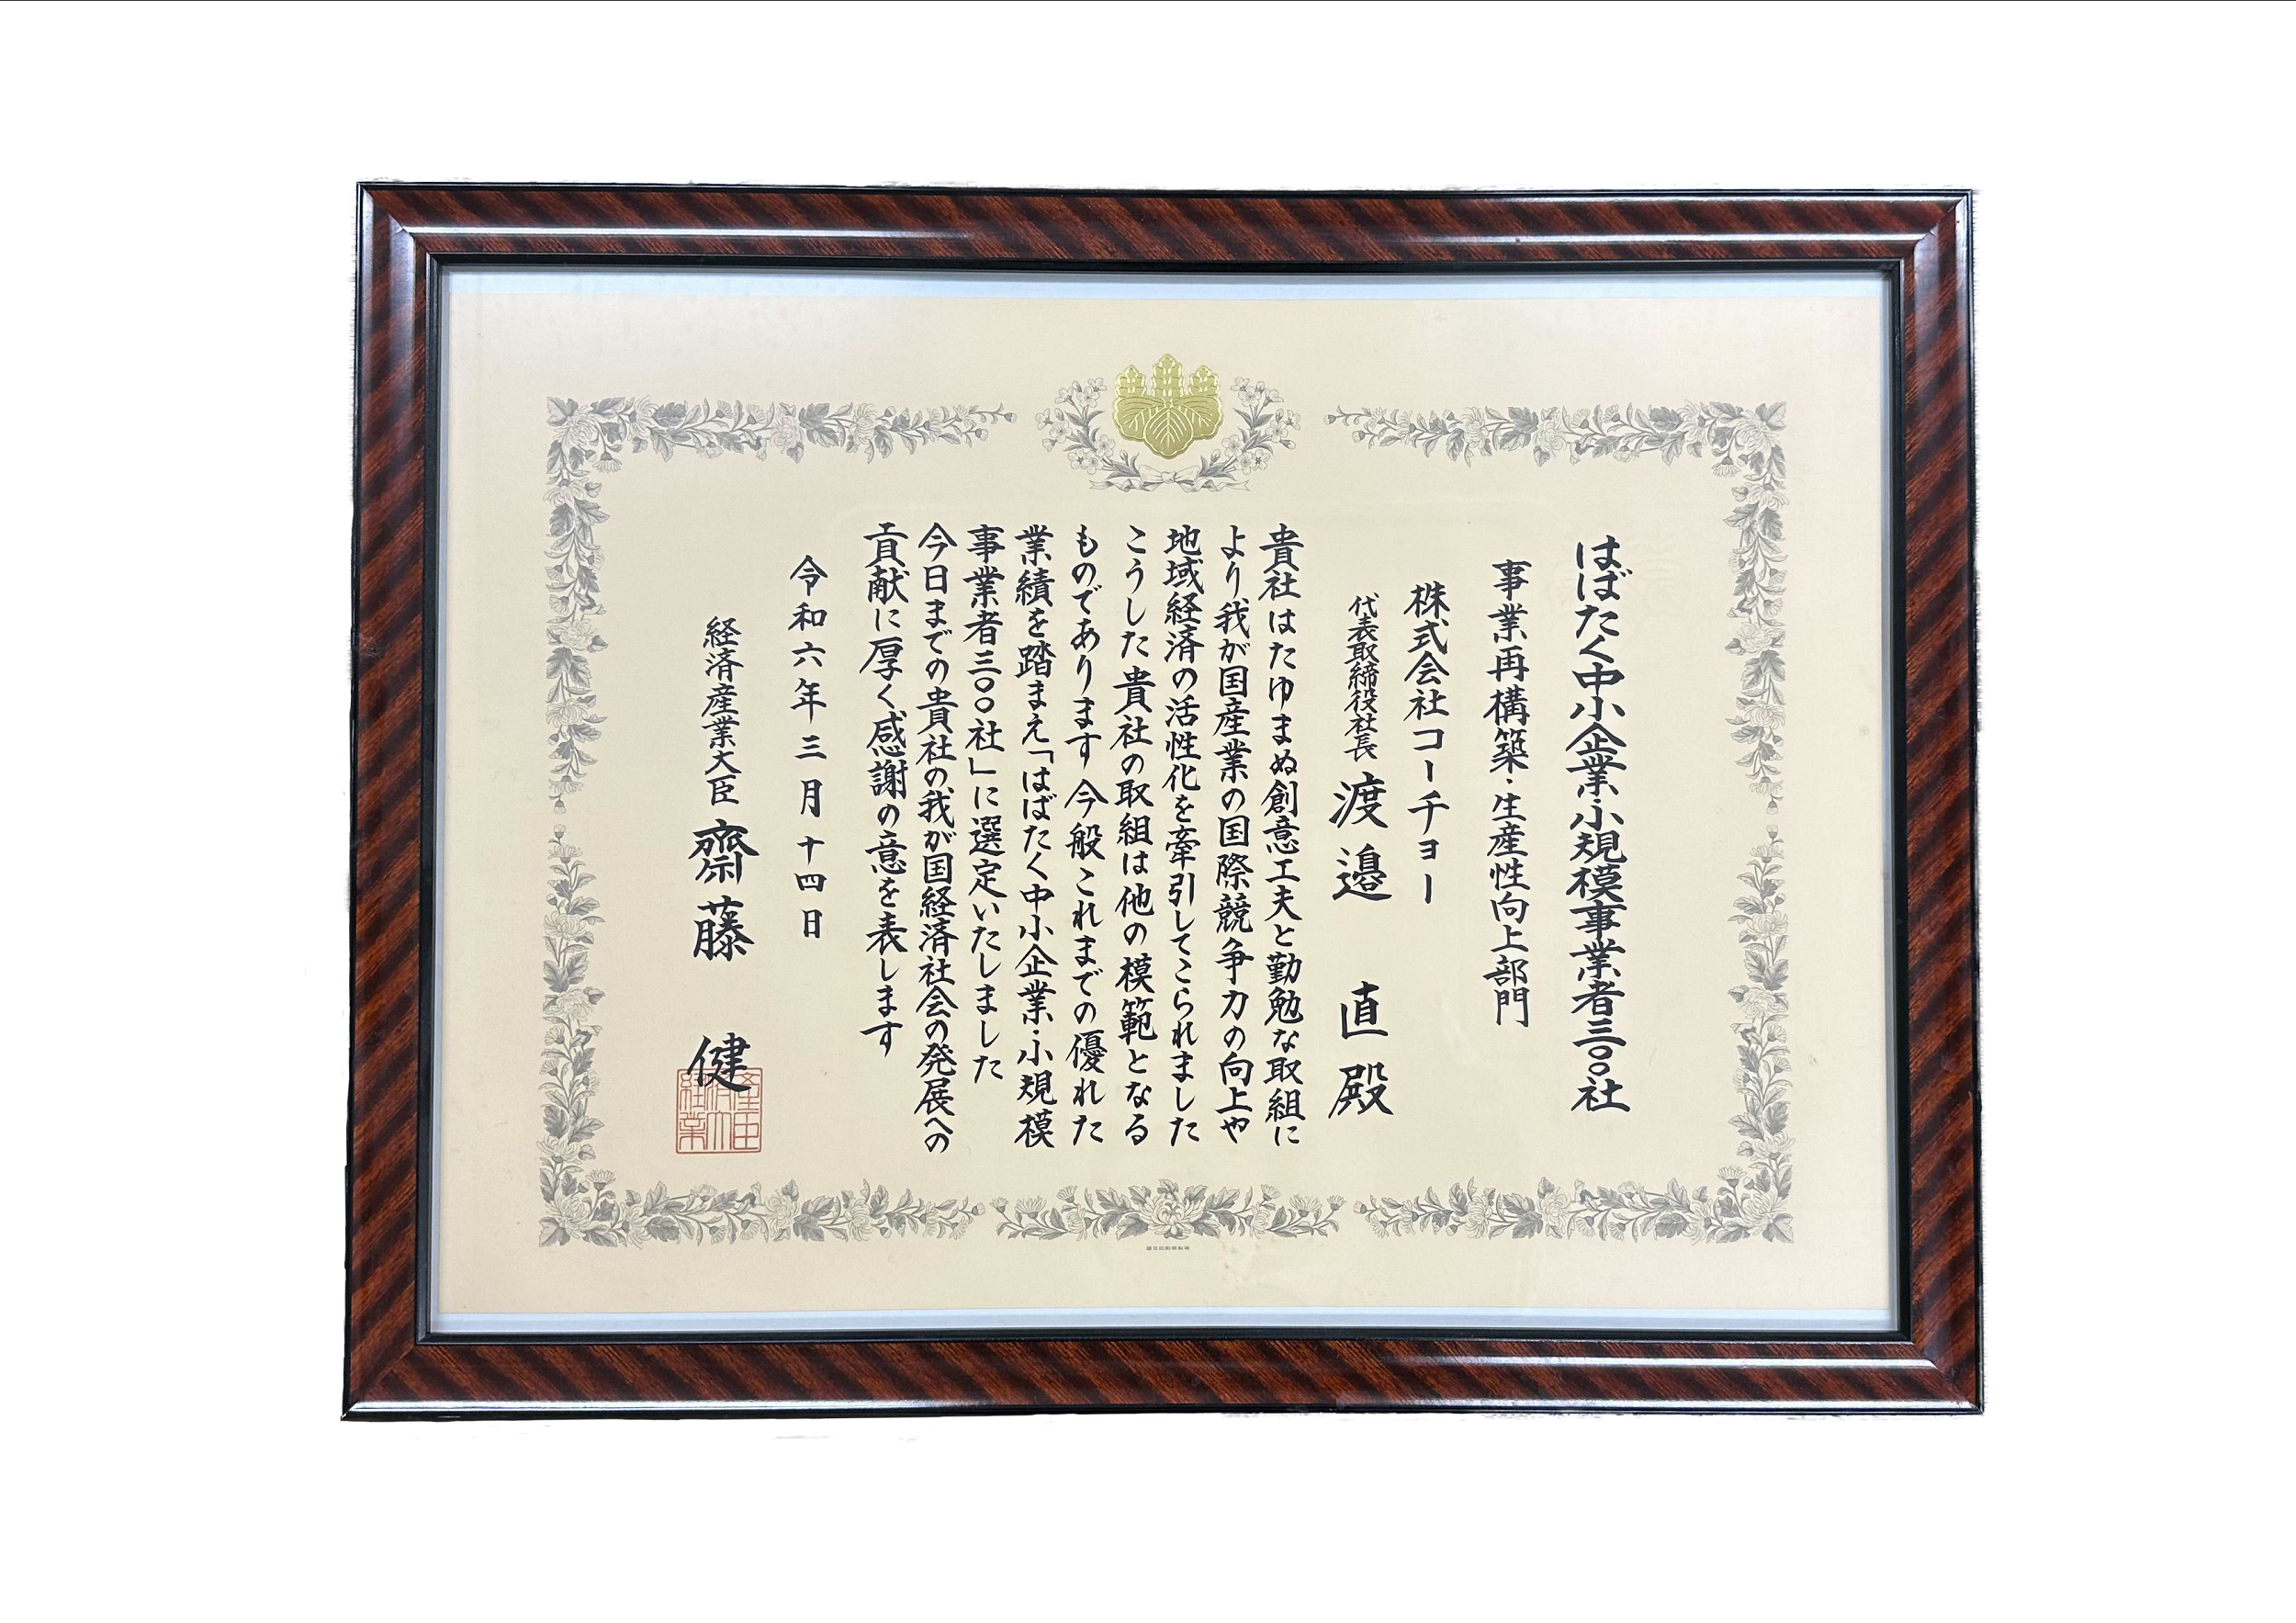 はばたく中小企業・小規模事業者三〇〇社
事業再構築・生産性向上部門
株式会社コーチョー
代表取締役社長 渡邉 直 殿
貴社はたゆまぬ創意工夫と勤勉な取組に
より我が国産業の国際競争力の向上や
地域経済の活性化を牽引してこられました
こうした貴社の取組は他の模範となる
ものであります 今般これまでの優れた
業績を踏まえ「はばたく中小企業・小規模
事業者三〇〇社」に選定いたしました
今日までの貴社の我が国経済社会の発展への
貢献に厚く感謝の意を表します
令和六年三月十四日
経済産業大臣 齋藤 健